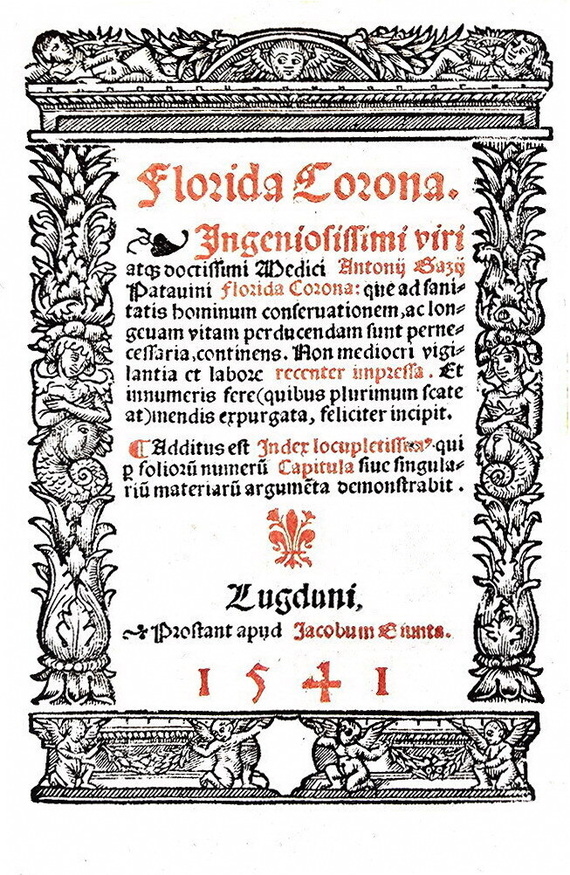 Florida Corona.
Ingeniosissimi viri
atqʒ doctissimi Medici Antonij Gazij
Patauini Florida Corona: que ad sani⸗
tatis hominum conseruationem, ac lon⸗
geuam vitam perducendam sunt perne⸗
cessaria, continens. Non mediocri vigi⸗
lantia et labore recenter impressa. Et
innumeris fere (quibus plurimum scate
at) mendis expurgata, feliciter incipit.
¶ Additus est Index locupletissimꝰ qui
ꝑ folioꝝ numerū Capitula siue singula⸗
riū materiarū argumēta demonstrabit.
Lugduni,
Prostant apud Jacobum Giunta.
1541